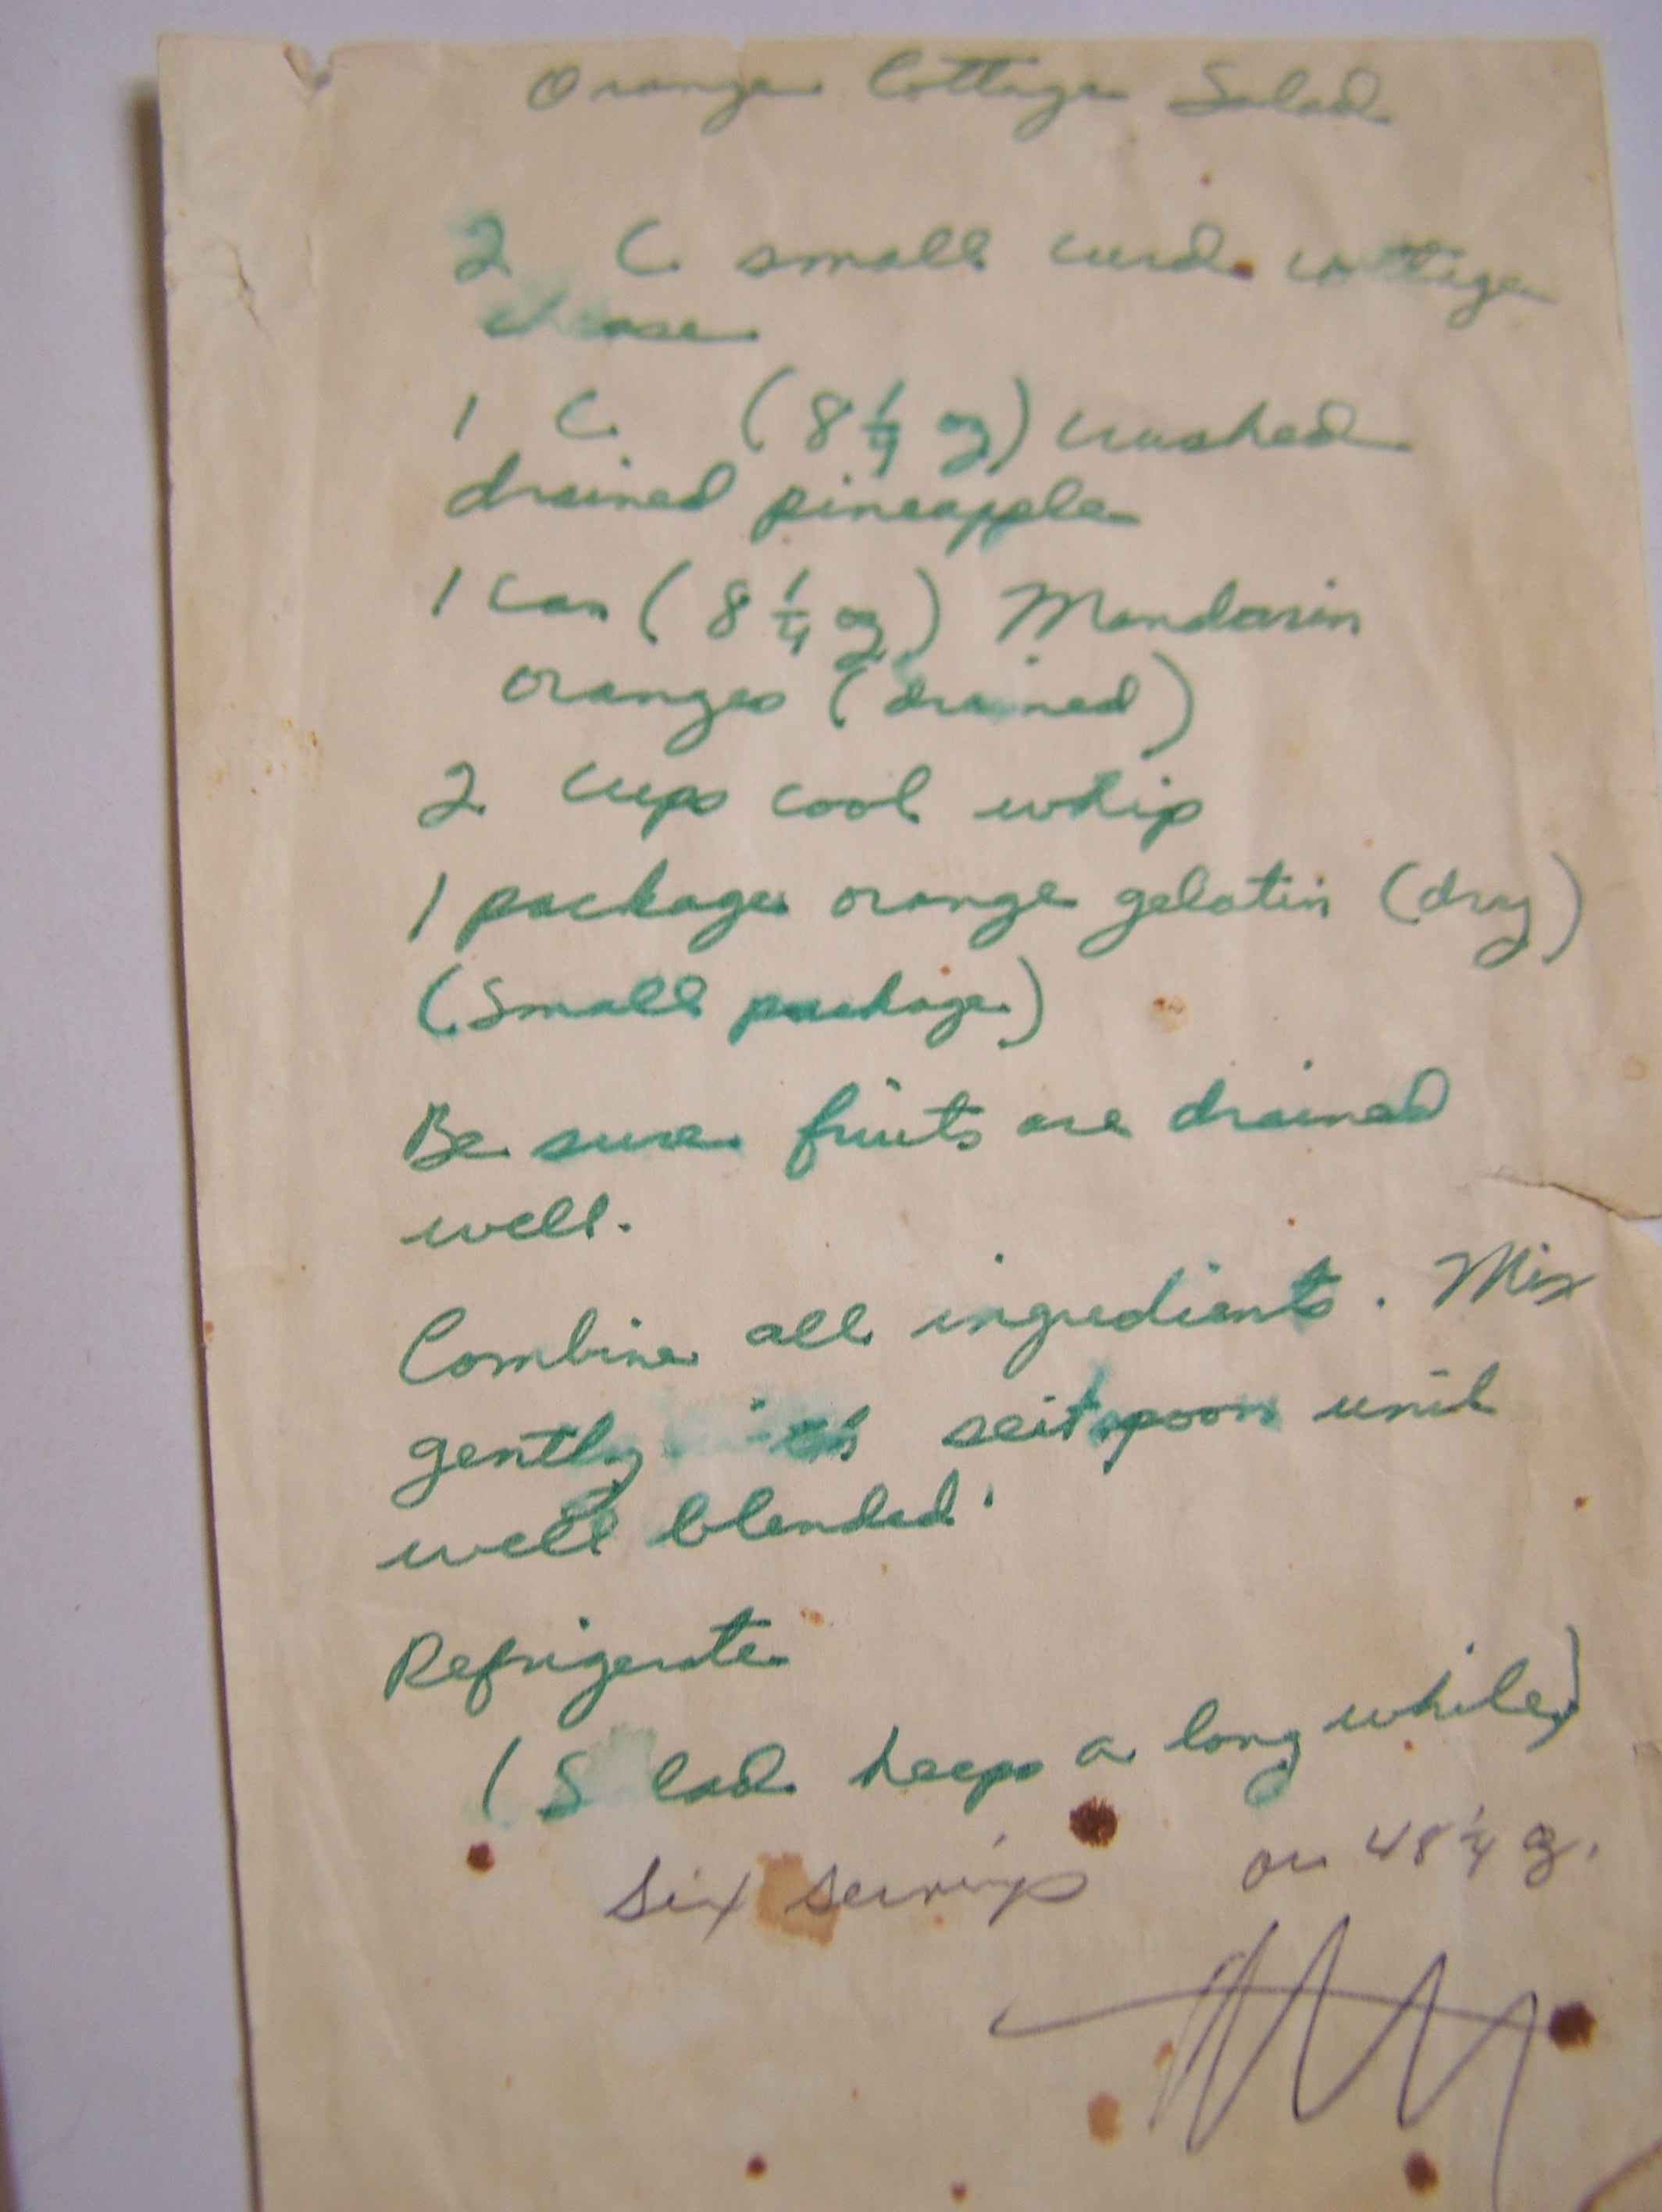 Orange Cottage Salad
2 C small curd cottage
cheese
1 C (8 1/4 oz) crushed
drained pineapple
1 can (8 1/4 oz) Mandarin
oranges (drained)
2 cups cool whip
1 package orange gelatin (dry)
(Small package)
Be sure fruits are drained
well.
Combine all ingredients. Mix
gently until
well blended.
Refrigerate
(Salad keeps a long while)
six servings or 48 1/4 oz.